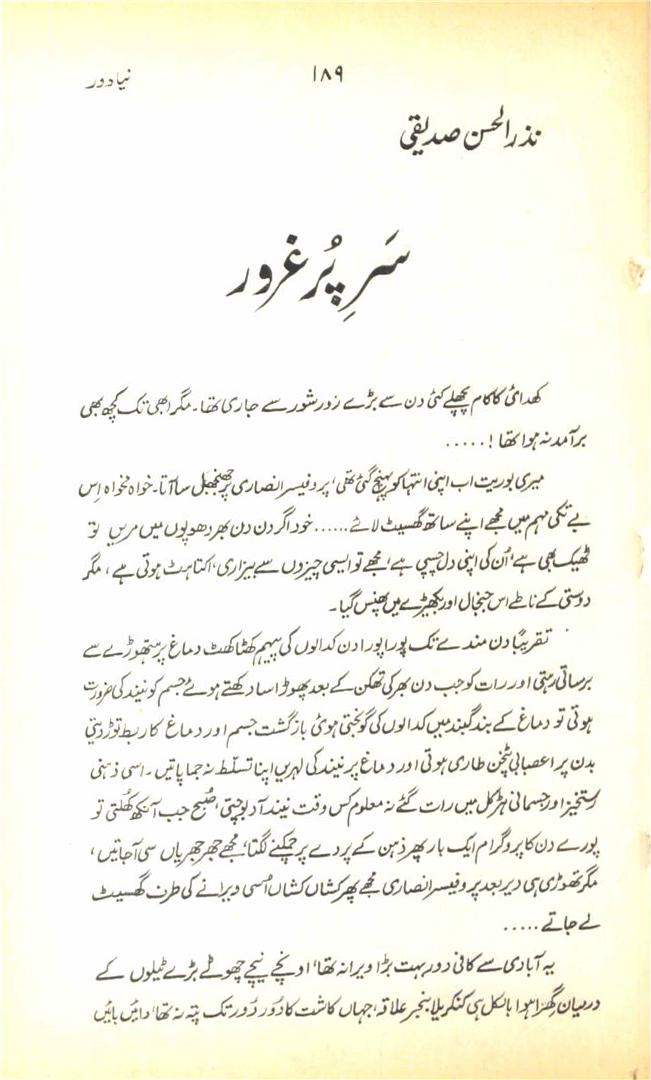 نیا دور
۱۸۹
نذر الحسن صدیقی
سَرِ پُر غرور
کھدائی کا کام پچھلے کئی دن سے بڑے زور شور سے جاری تھا۔ مگر ابھی تک کچھ بھی
برآمد نہ ہوا تھا!.....
میری بوریت اب اپنی انتہا کو پہنچ گئی تھی، پروفیسر انصاری پر جھنجھل سا آتا۔ خواہ مخواہ اِس
بے تکی مہم میں مجھے اپنے ساتھ گھسیٹ لائے...... خود اگر دن دن بھر دھوپوں میں مریں تو
ٹھیک بھی ہے، اُن کی اپنی دل چسپی ہے، مجھے تو ایسی چیزوں سے بیزاری، اکتاہٹ ہوتی ہے، مگر
دوستی کے ناطے اس جنجال اور بکھیڑے میں پھنس گیا۔
تقریباً دن مندے تک پورا پورا دن کدالوں کی پیہم کھٹا کھٹ دماغ پر ہتھوڑے سے
برساتی رہتی اور رات کو جب دن بھر کی تھکن کے بعد پھوڑا سا دکھتے ہوئے جسم کو نیند کی ضرورت
ہوتی تو دماغ کے بند گنبد میں کدالوں کی گونجتی ہوئی بازگشت جسم اور دماغ کا ربط توڑ دیتی
بدن پر اعصابی ٹخن طاری ہوتی اور دماغ پر نیند کی لہریں اپنا تسلّط نہ جما پاتیں۔ اسی ذہنی
رستخیز اور جسمانی ہڑکل میں رات گئے نہ معلوم کس وقت نیند آ دبوچتی، صُبح جب آنکھ کُھلتی تو
پورے دن کا پروگرام ایک بار پھر ذہن کے پردے پر چمکنے لگتا، مجھے جھرجھریاں سی آجاتیں،
مگر تھوڑی ہی دیر بعد پروفیسر انصاری مجھے پھر کشاں کشاں اُسی ویرانے کی طرف گھسیٹ
لے جاتے.....
یہ آبادی سے کافی دور بہت بڑا ویرانہ تھا، اونچے نیچے چھوٹے بڑے ٹیلوں کے
درمیان گِھرا ہوا بالکل ہی کنکریلا بنجر علاقہ، جہاں کاشت کا دُور دُور تک پتہ نہ تھا، دائیں بائیں